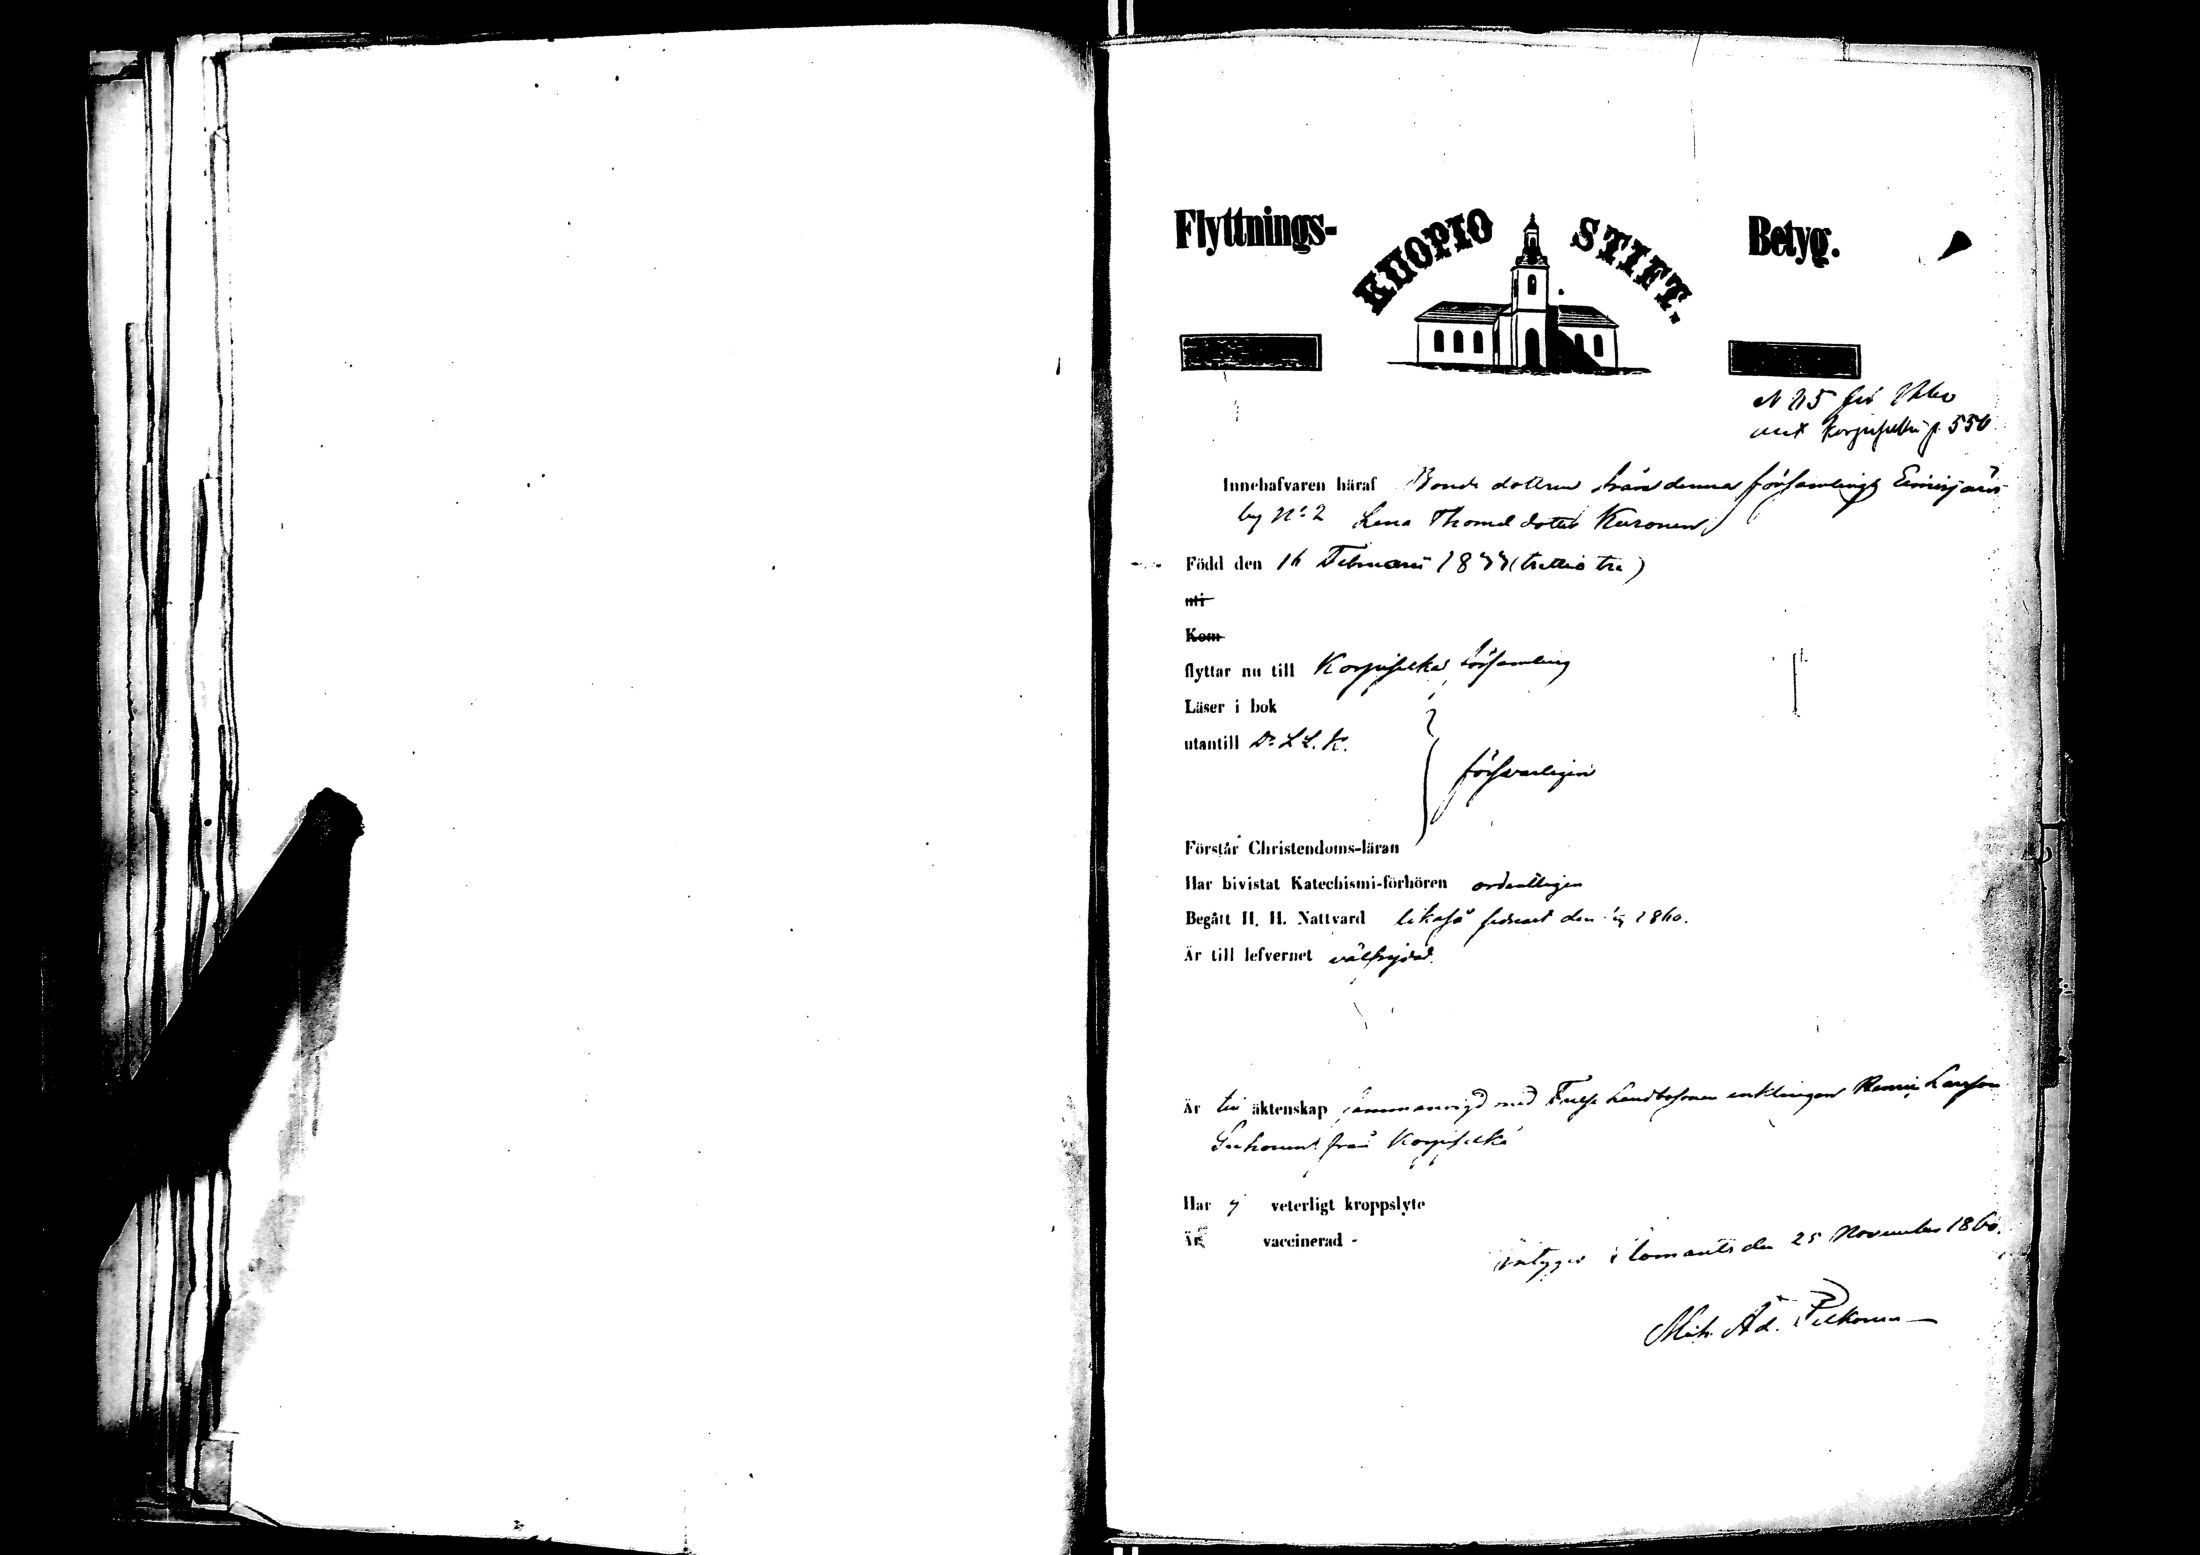 Flyttnings- KUOPIO STIFT. Betyg.
p. 550
Innehafvaren häraf Bonde dottren från denna församlings
by N:o 2 Lena Thomæ dotter Kuronen
Född den 16 Februarii 1833 (trettio tre)
uti
Kom
flyttar nu till Korpiselkä församling
Läser i bok
utantill D:r L. L. K.
försvarligen
Förstår Christendoms-läran
Har bivistat Katechismi-förhören ordentligen
Begått H. H. Nattvard likaså senast den 1860.
Är till lefvernet välfrejdad
Är till äktenskap sammanvigd med enklingen Larsson
från Korpiselkä
Har ej veterligt kroppslyte
Är vaccinerad -
intygar Ilomants den 25 November 1860.
Mich. Ad.